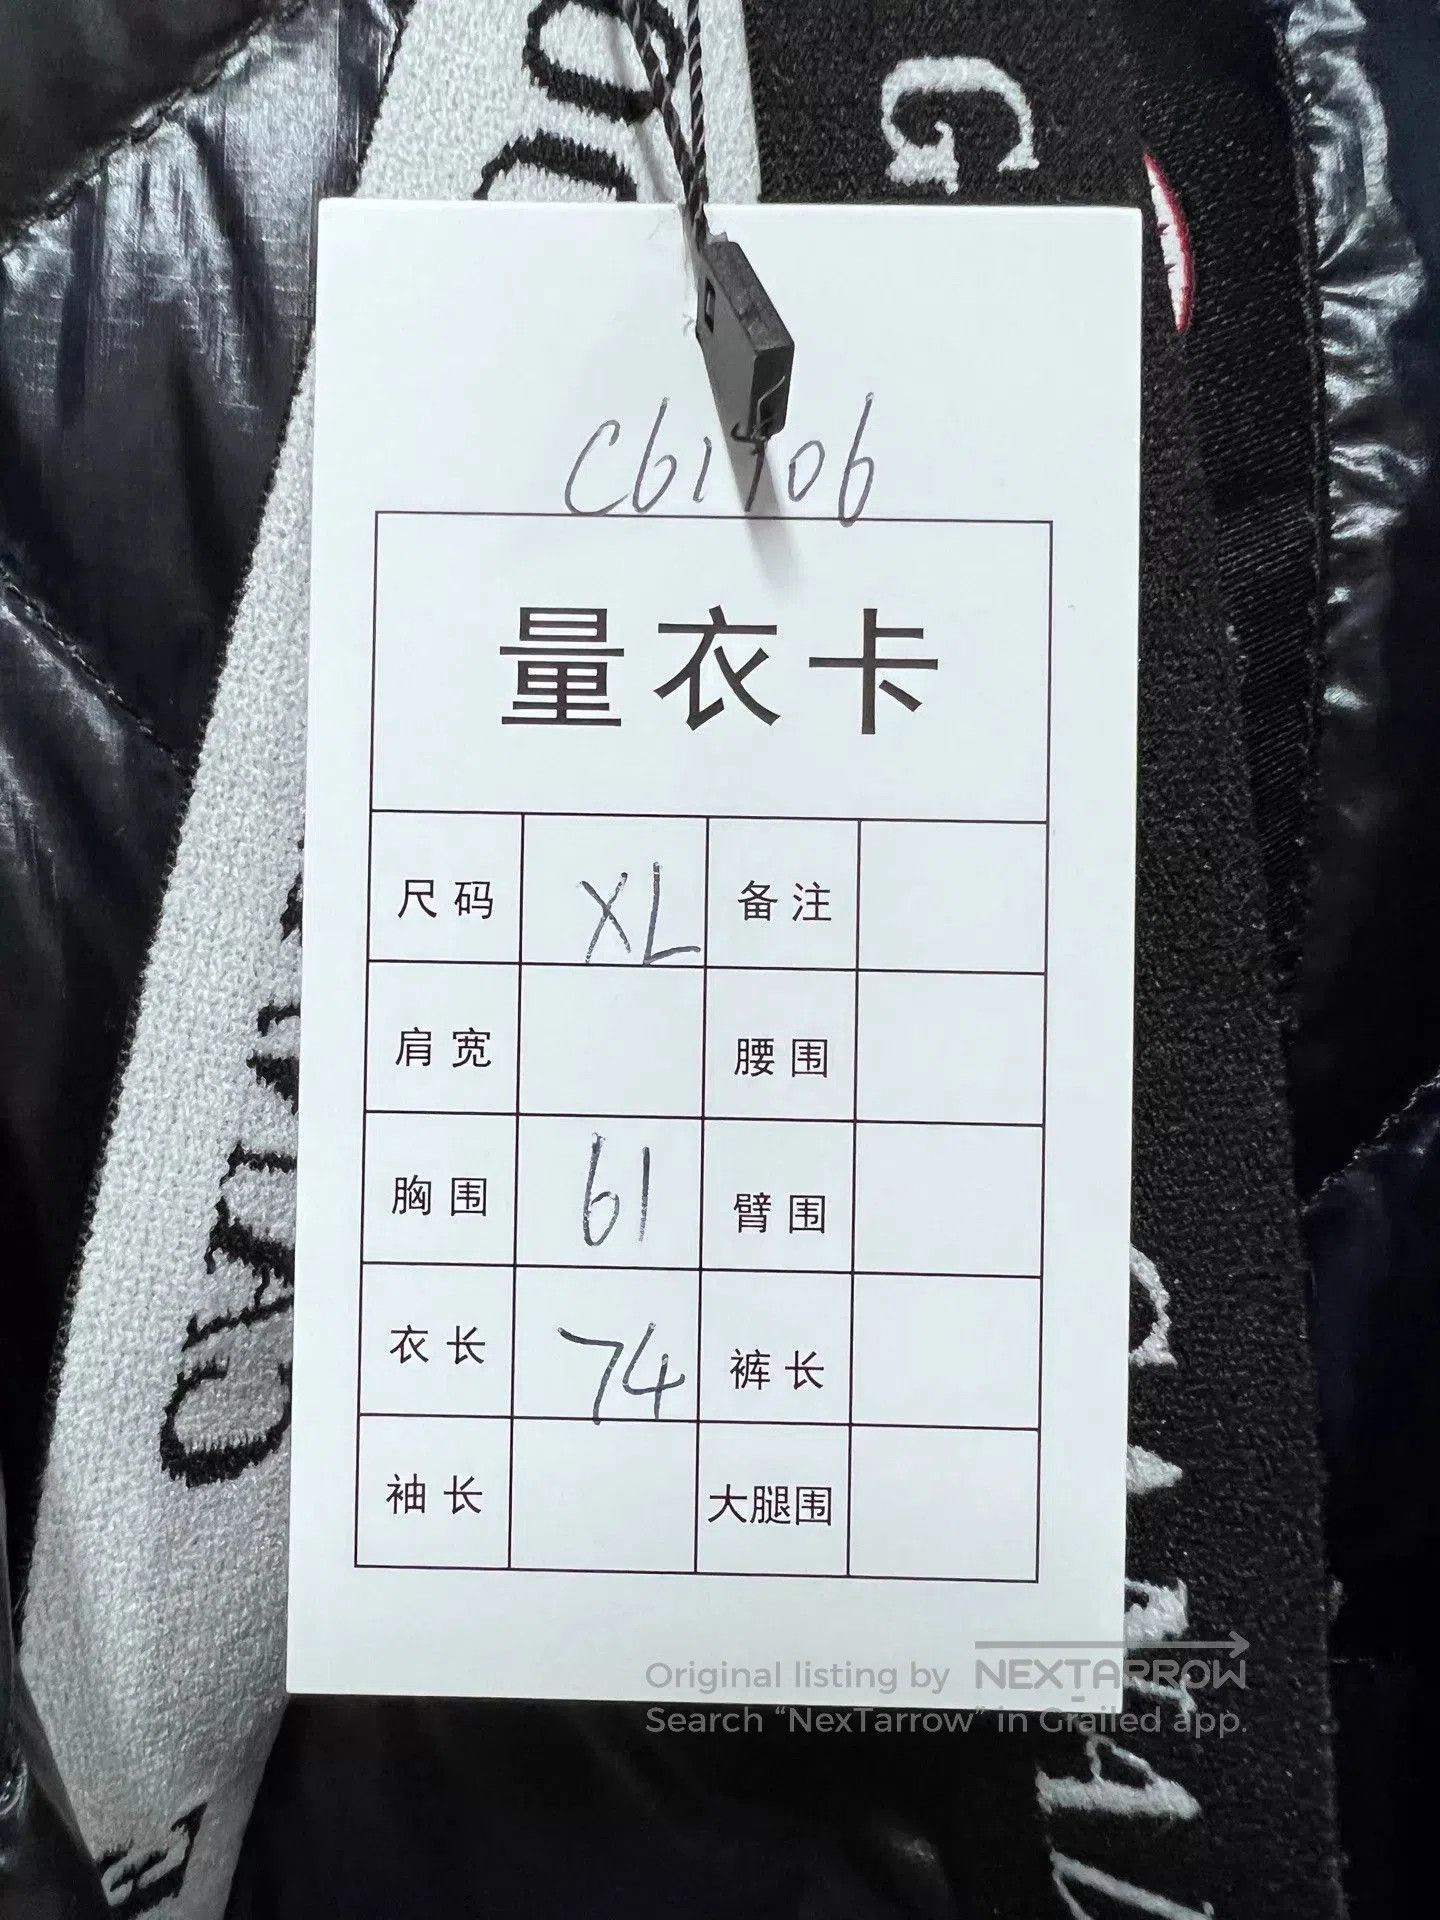 G
C61906
量衣卡
尺码 XL 备注
肩宽 腰围
胸围 61 臂围
衣长 74 裤长
袖长 大腿围
Original listing by NEXTARROW
Search “NexTarrow” in Grailed app.